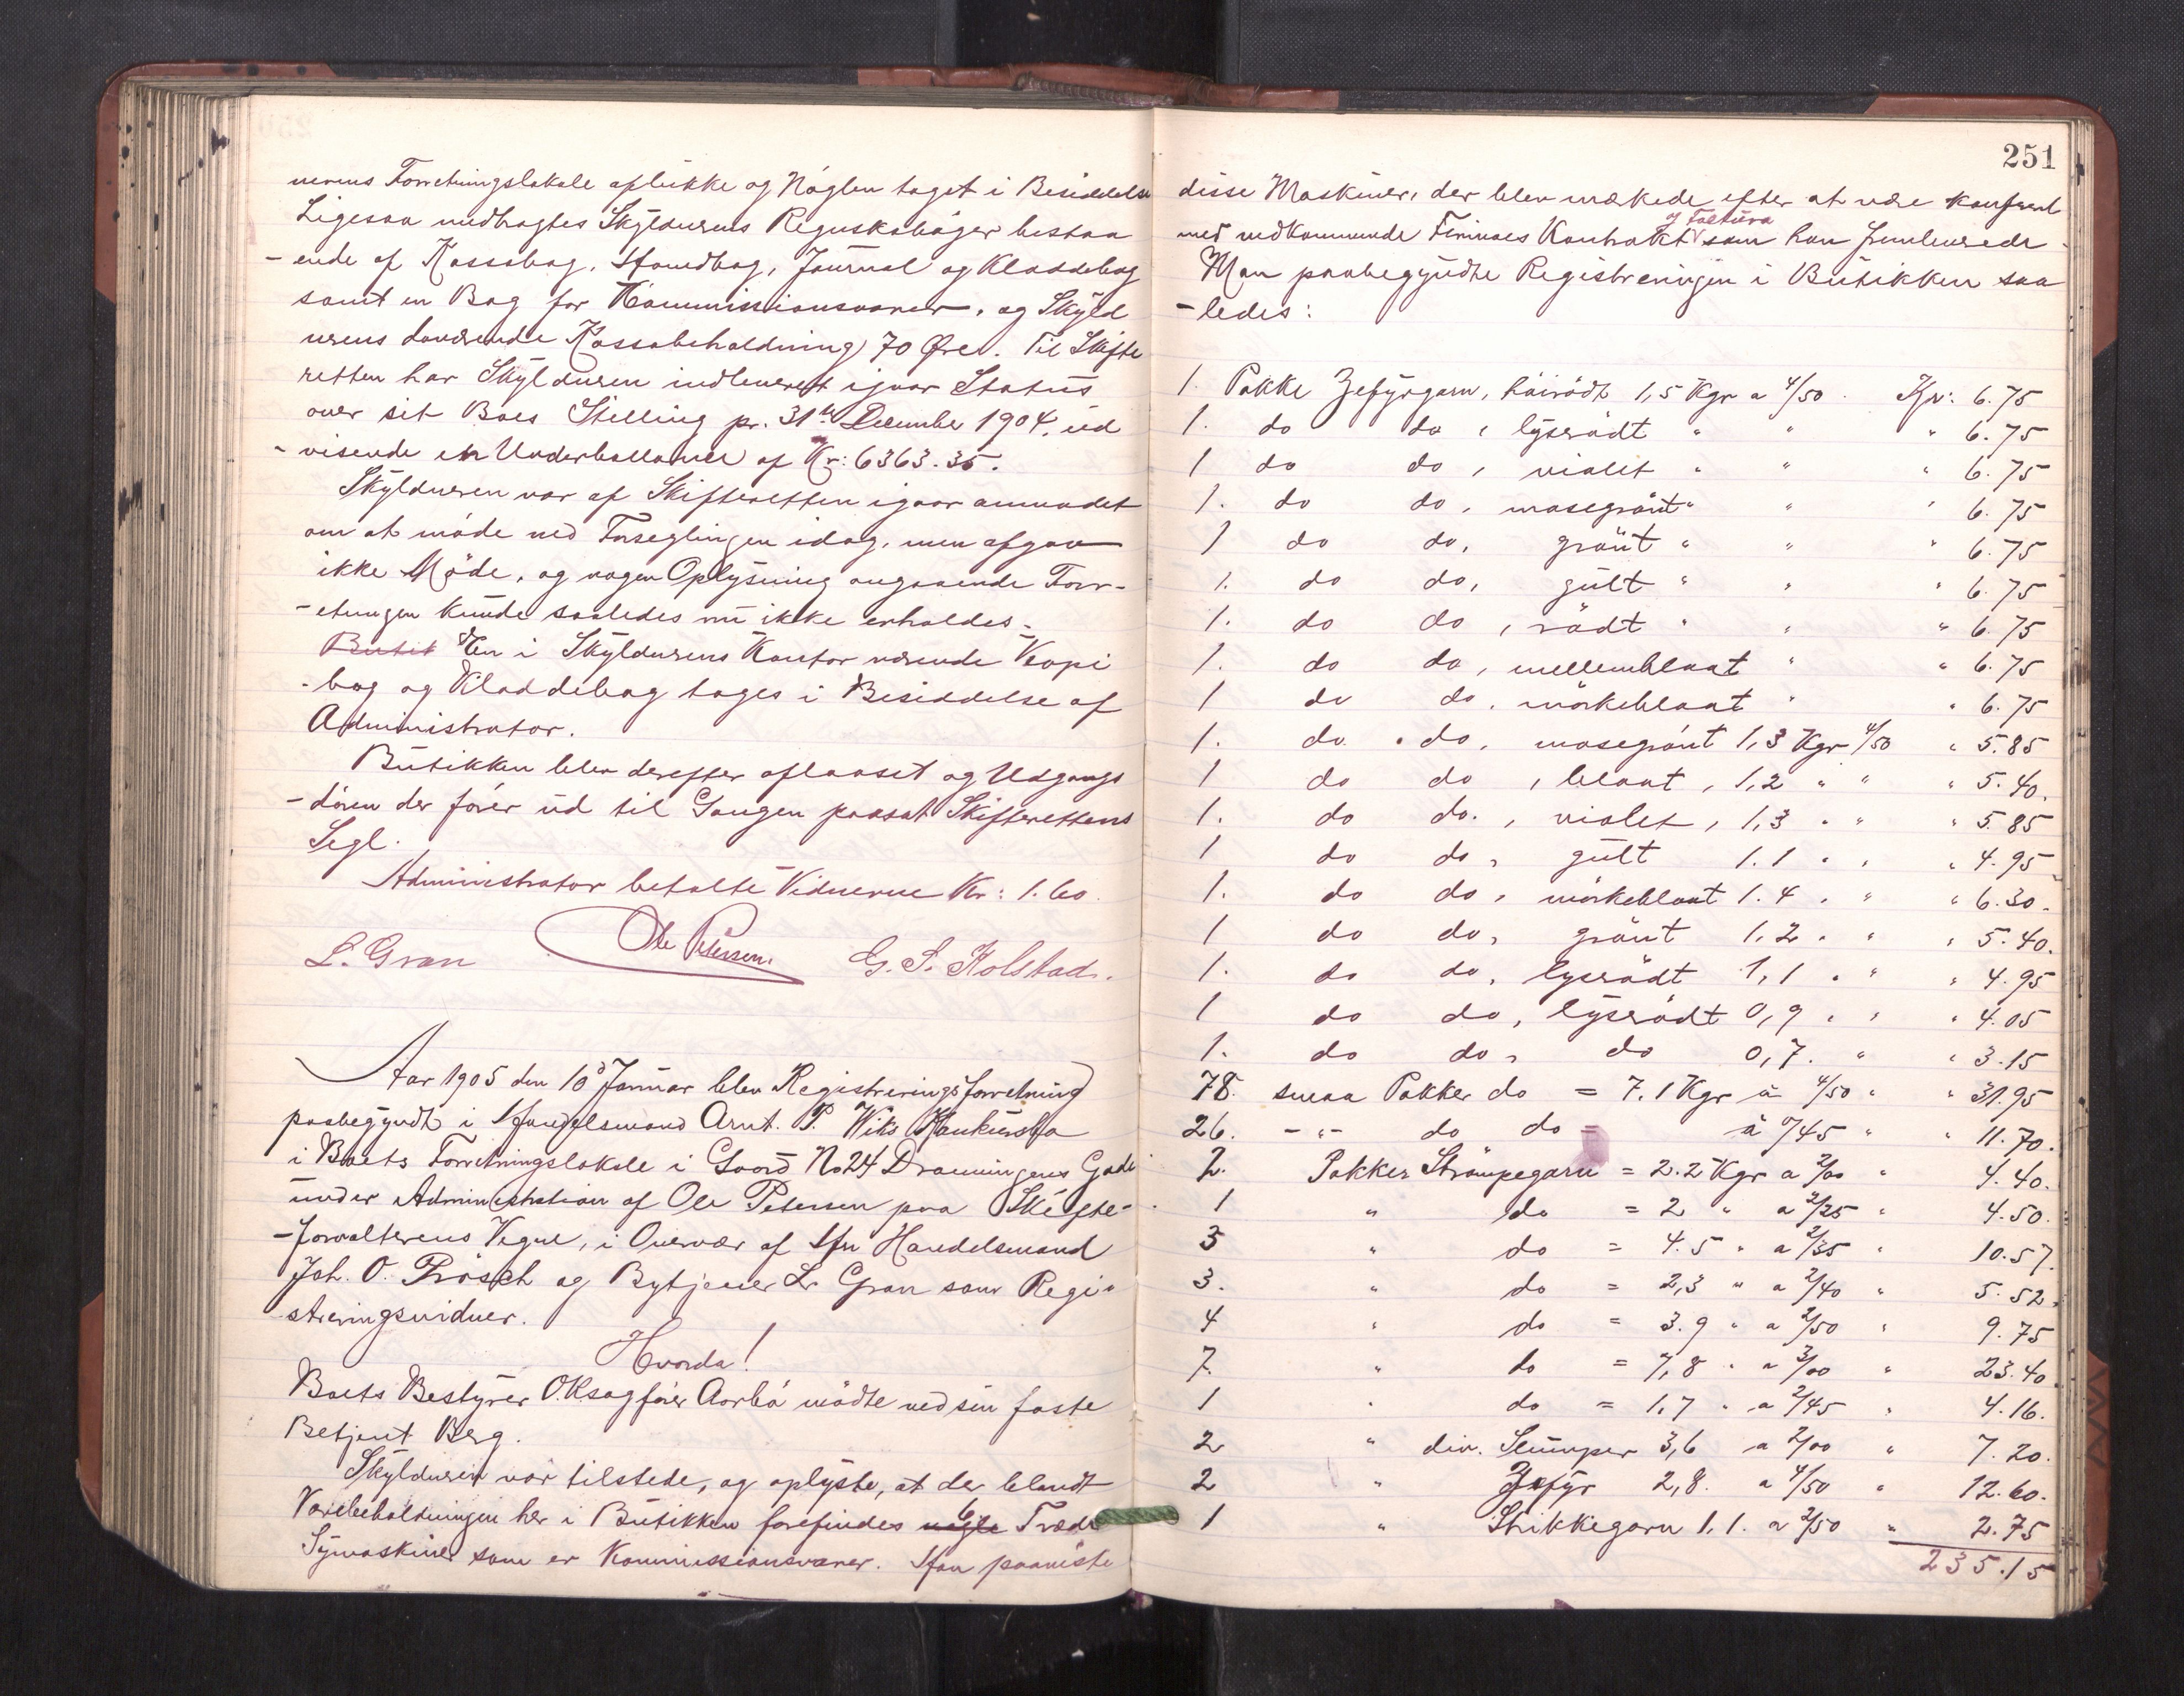 nerens Forretningslokale aflukke og Nøglen taget i Besiddelse
Ligesaa medtagtes Skyldnerens Regnskabsbøger bestaa
-ende af Kassabog, Haandbog, Journal og Kladdebog
samt en Bog for Kommissionsvarer, og Skyld
nerens havende Kassabeholdning 70 Øre. Til Skifte
retten har Skyldneren indleveret igaar Status
over sit Boes Stilling pr. 31te December 1904, ud
-visende en Underballance af Kr: 6363.35.
Skyldneren var af Skifteretten igaar anmodet
om at møde ved Forseglingen idag, men afgav
ikke Møde, og nogen Oplysning angaaende Forr-
-etningen kunde saaledes nu ikke erholdes.
Butik En i Skyldnerens Kontor værende Kopi
-bog og Kladdebog tages i Besiddelse af
Administrator.
Butikken blev derefter aflaaset og Udgangs
-døren der fører ud til Gangen paasat Skifterettens
Segl.
Administrator betalte Vidnerne Kr: 1.60.
L. Gran Ole Petersen G. S. Kolstad.
Aar 1905 den 10d Januar blev Registreringsforretning
paabegyndt i Handelsmand Arnt. P. Wiks Konkursbo
i Boets Forretningslokale i Gaard No 24 Dronningens Gade
under Administration af Ole Petersen paa Skifte-
-forvalterens Vegne, i Overvær af Hr Handelsmand
Joh. O. Prøsch og Bytjener L. Gran som Regi-
streringsvidner.
Hvorda!
Boets Bestyrer O.Rsagfører Aarbø mødte ved sin faste
Betjent Berg.
Skyldneren var tilstede, og oplyste, at der blandt
Varebeholdningen her i Butikken forefindes nogle 6 Træde
Symaskiner som er Kommissionsvarer. Han paaviste
251
disse Maskiner, der blev mærkede efter at være konfereret
med vedkommende Firmaes Kontrakt og Factura som han fremleverede
Man paabegyndte Registreringen i Butikken saa
-ledes:
1. Pakke Zefyrgarn, høirødt 1,5 Kgr a 4/50 Kr: 6.75
1. do do , lyserødt " " " 6.75
1 do do , violet " " " 6.75
1. do do , mosegrønt " " " 6.75
1 do do, grønt " " " 6.75
1. do do, gult " " " 6.75
1. do do , rødt " " " 6.75
1. do do , mellemblaat " " 6.75
1 do do , mørkeblaat " " 6.75
1. do. do, mosegrønt 1,3 Kgr 4/50 " 5.85
1 do do , blaat , 1,2 " " " 5.40.
1. do do. , violet , 1,3 " " " 5.85
1 do do , gult 1.1 " " " 4.95
1. do do , mørkeblaat 1.4 " " " 6.30.
1 do do, grønt 1.2 " " " 5.40.
1. do do, lyserødt 1,1 " " " 4.95
1 do do, lyserødt 0,9 " " " 4.05
1. do do, do 0,7. " " 3.15
78. smaa Pakker do = 7.1 Kgr á 4/50 " " 31.95
26. -"- do do = á 0/45 " " 11.70.
2. Pakker Strømpegarn = 2.2 Kgr a 2/00 " 4.40.
1 " do = 2 " a 2/25 " 4.50.
3 " do = 4.5 " a 2/35 " 10.57.
3. " do = 2,3 " a 2/40 " 5.52.
4 " do = 3.9 " a 2/50 " 9.75
7. " do = 7,8 " a 3/00 " 23.40
1 " do = 1.7 " a 2/45 " 4.16.
2 " div. Slumper 3,6 a 2/00 " 7.20.
2 " Zefyr 2,8. a 4/50 " 12.60.
1 " Strikkegarn 1.1. a 2/50 " 2.75
235.15